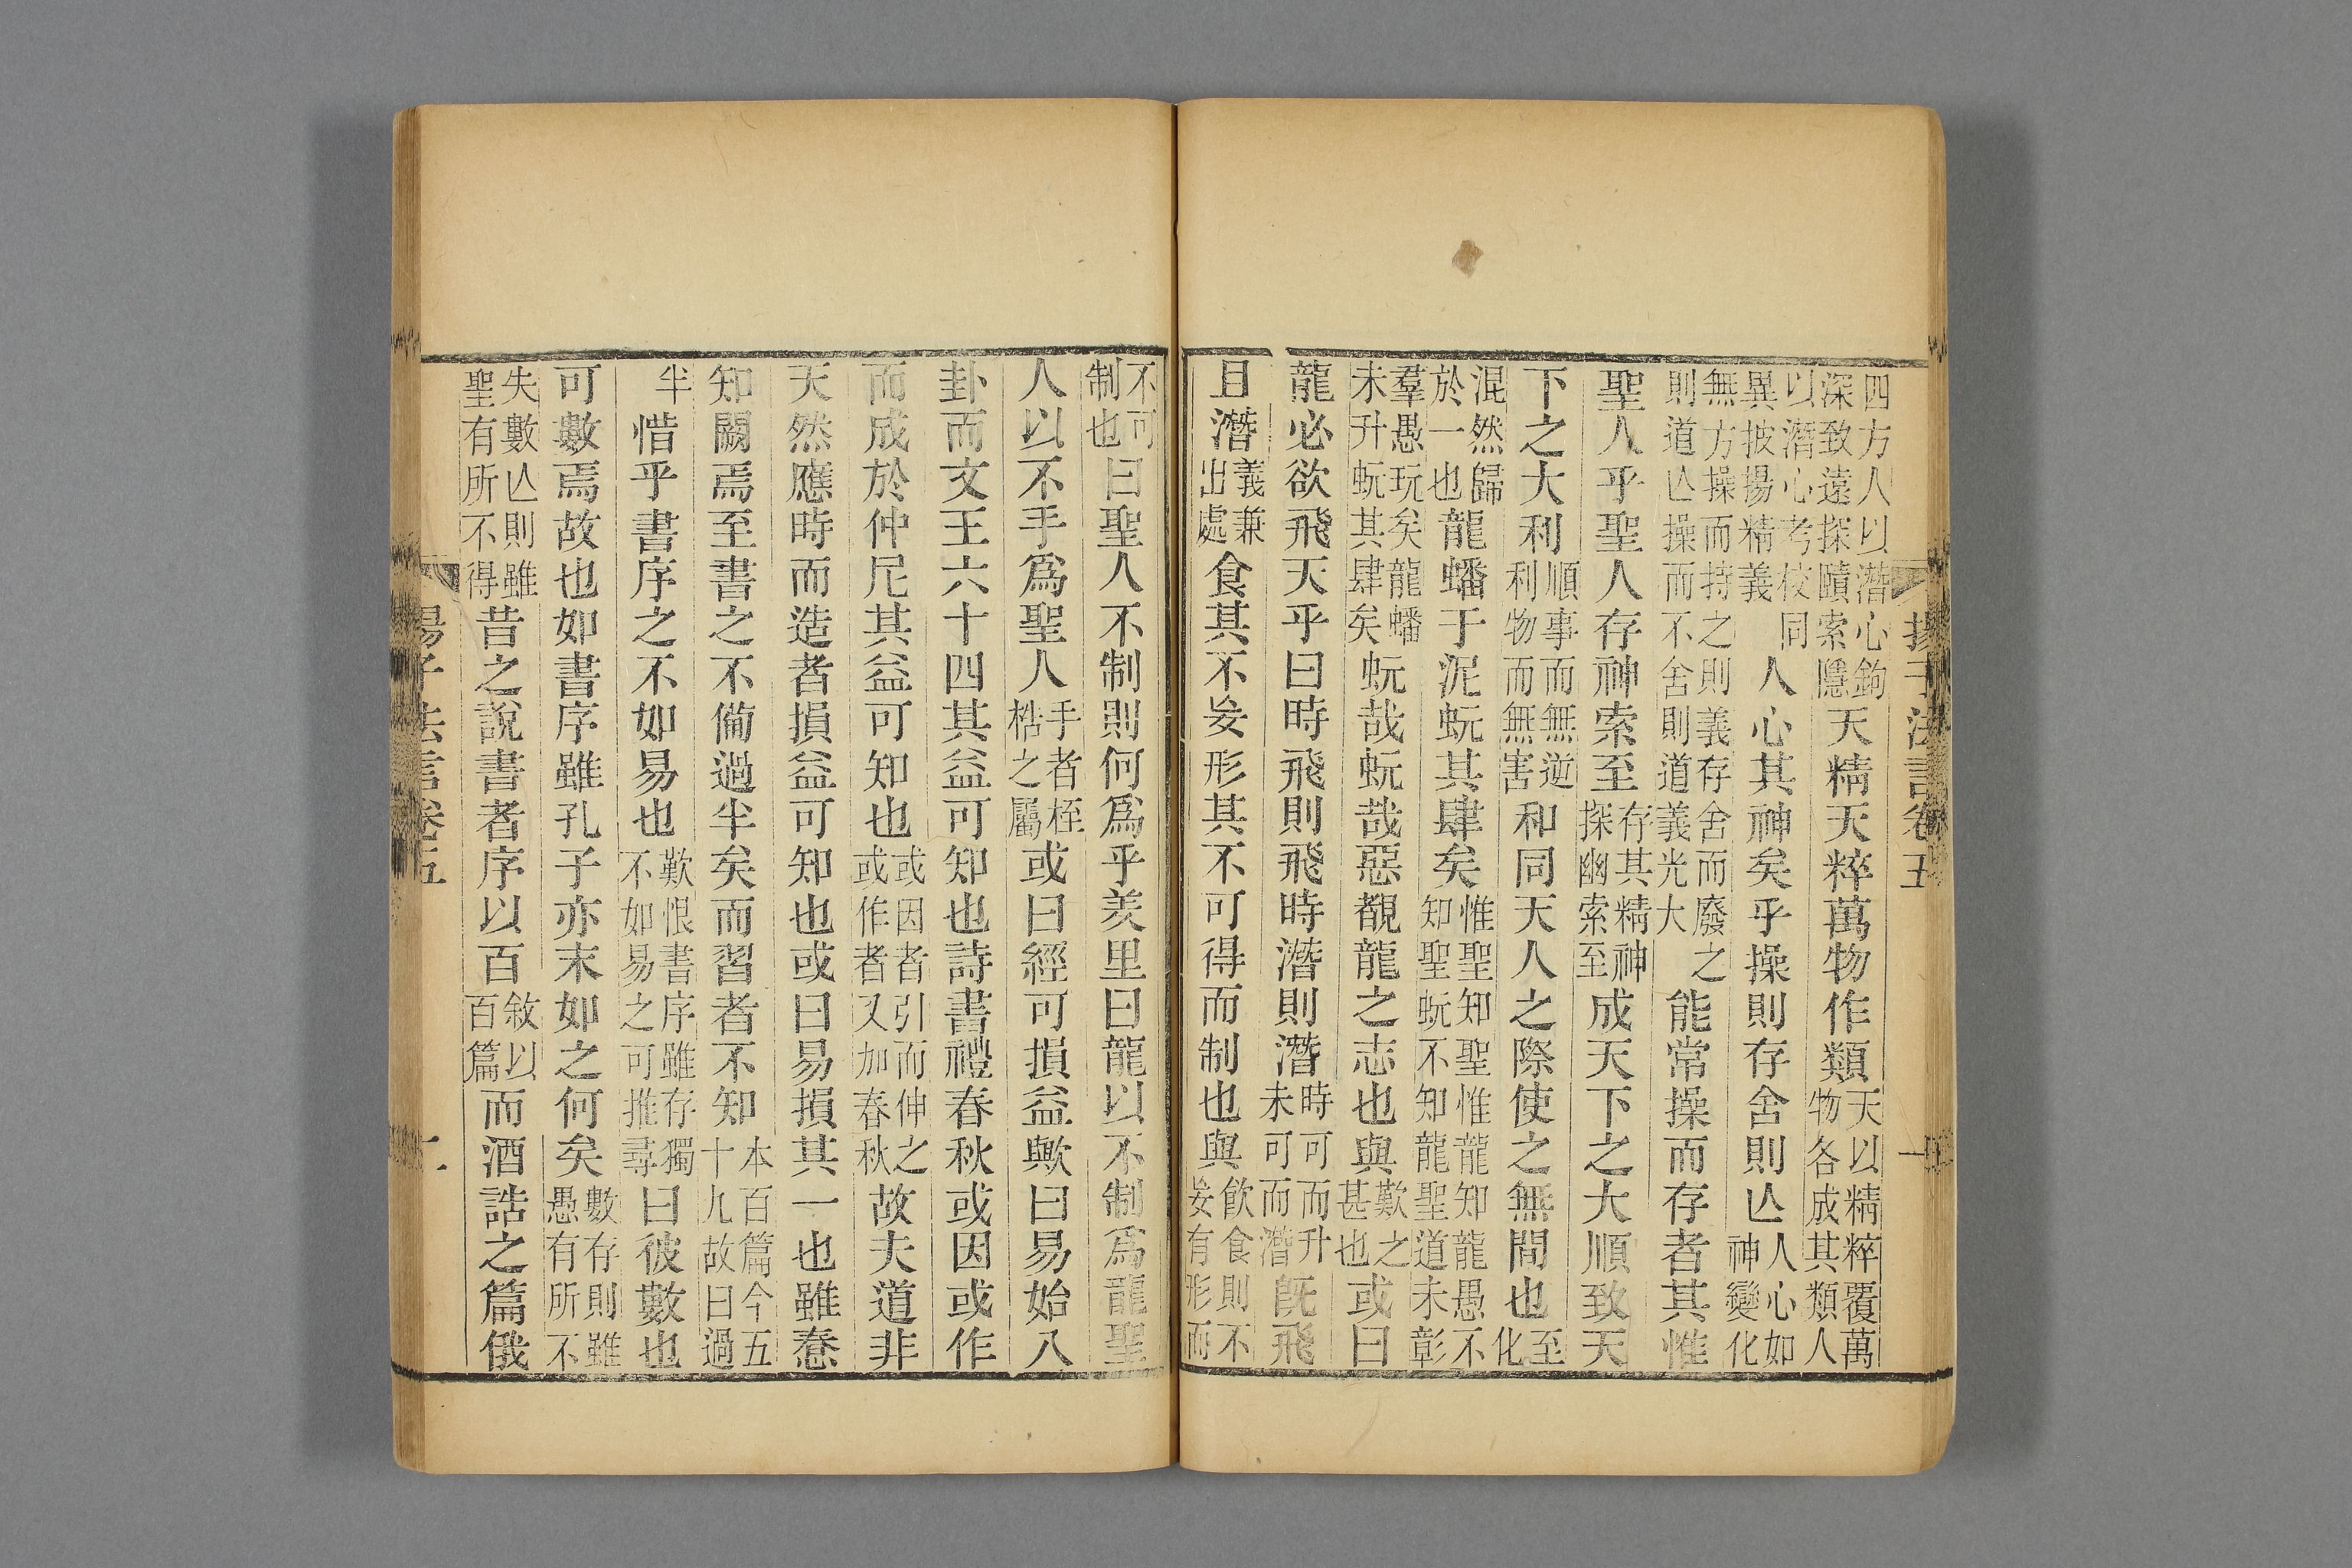 揚子法言卷五 一
四方人以潛心鉤深致遠探賾索隱天精天粹萬物作類天以精粹覆萬物各成其類人
以潛心考校同異披揚精義人心其神矣乎操則存舍則亾人心如神變化
無方操而持之則義存舍而廢之則道亾操而不舍則道義光大能常操而存者其惟
聖人乎聖人存神索至存其精神探幽索至成天下之大順致天
下之大利順事而無逆利物而無害和同天人之際使之無間也至化
混然歸於一也龍蟠于泥蚖其肆矣惟聖知聖惟龍知龍愚不知聖蚖不知龍聖道未彰
羣愚玩矣龍蟠未升蚖其肆矣蚖哉蚖哉惡覩龍之志也與歎之甚也或曰
龍必欲飛天乎曰時飛則飛時潛則潛時可而升未可而潛旣飛
且潛義兼出處食其不妄形其不可得而制也與飲食則不妄有形而
不可制也曰聖人不制則何爲乎羑里曰龍以不制爲龍聖
人以不手爲聖人手者桎梏之屬或曰經可損益歟曰易始八
卦而文王六十四其益可知也詩書禮春秋或因或作
而成於仲尼其益可知也或因者引而伸之或作者又加春秋故夫道非
天然應時而造者損益可知也或曰易損其一也雖惷
知闕焉至書之不備過半矣而習者不知本百篇今五十九故曰過
半惜乎書序之不如易也歎恨書序雖存獨不如易之可推尋曰彼數也
可數焉故也如書序雖孔子亦末如之何矣數存則雖愚有所不
失數亾則雖聖有所不得昔之說書者序以百敘以百篇而酒誥之篇俄
揚子法言卷五